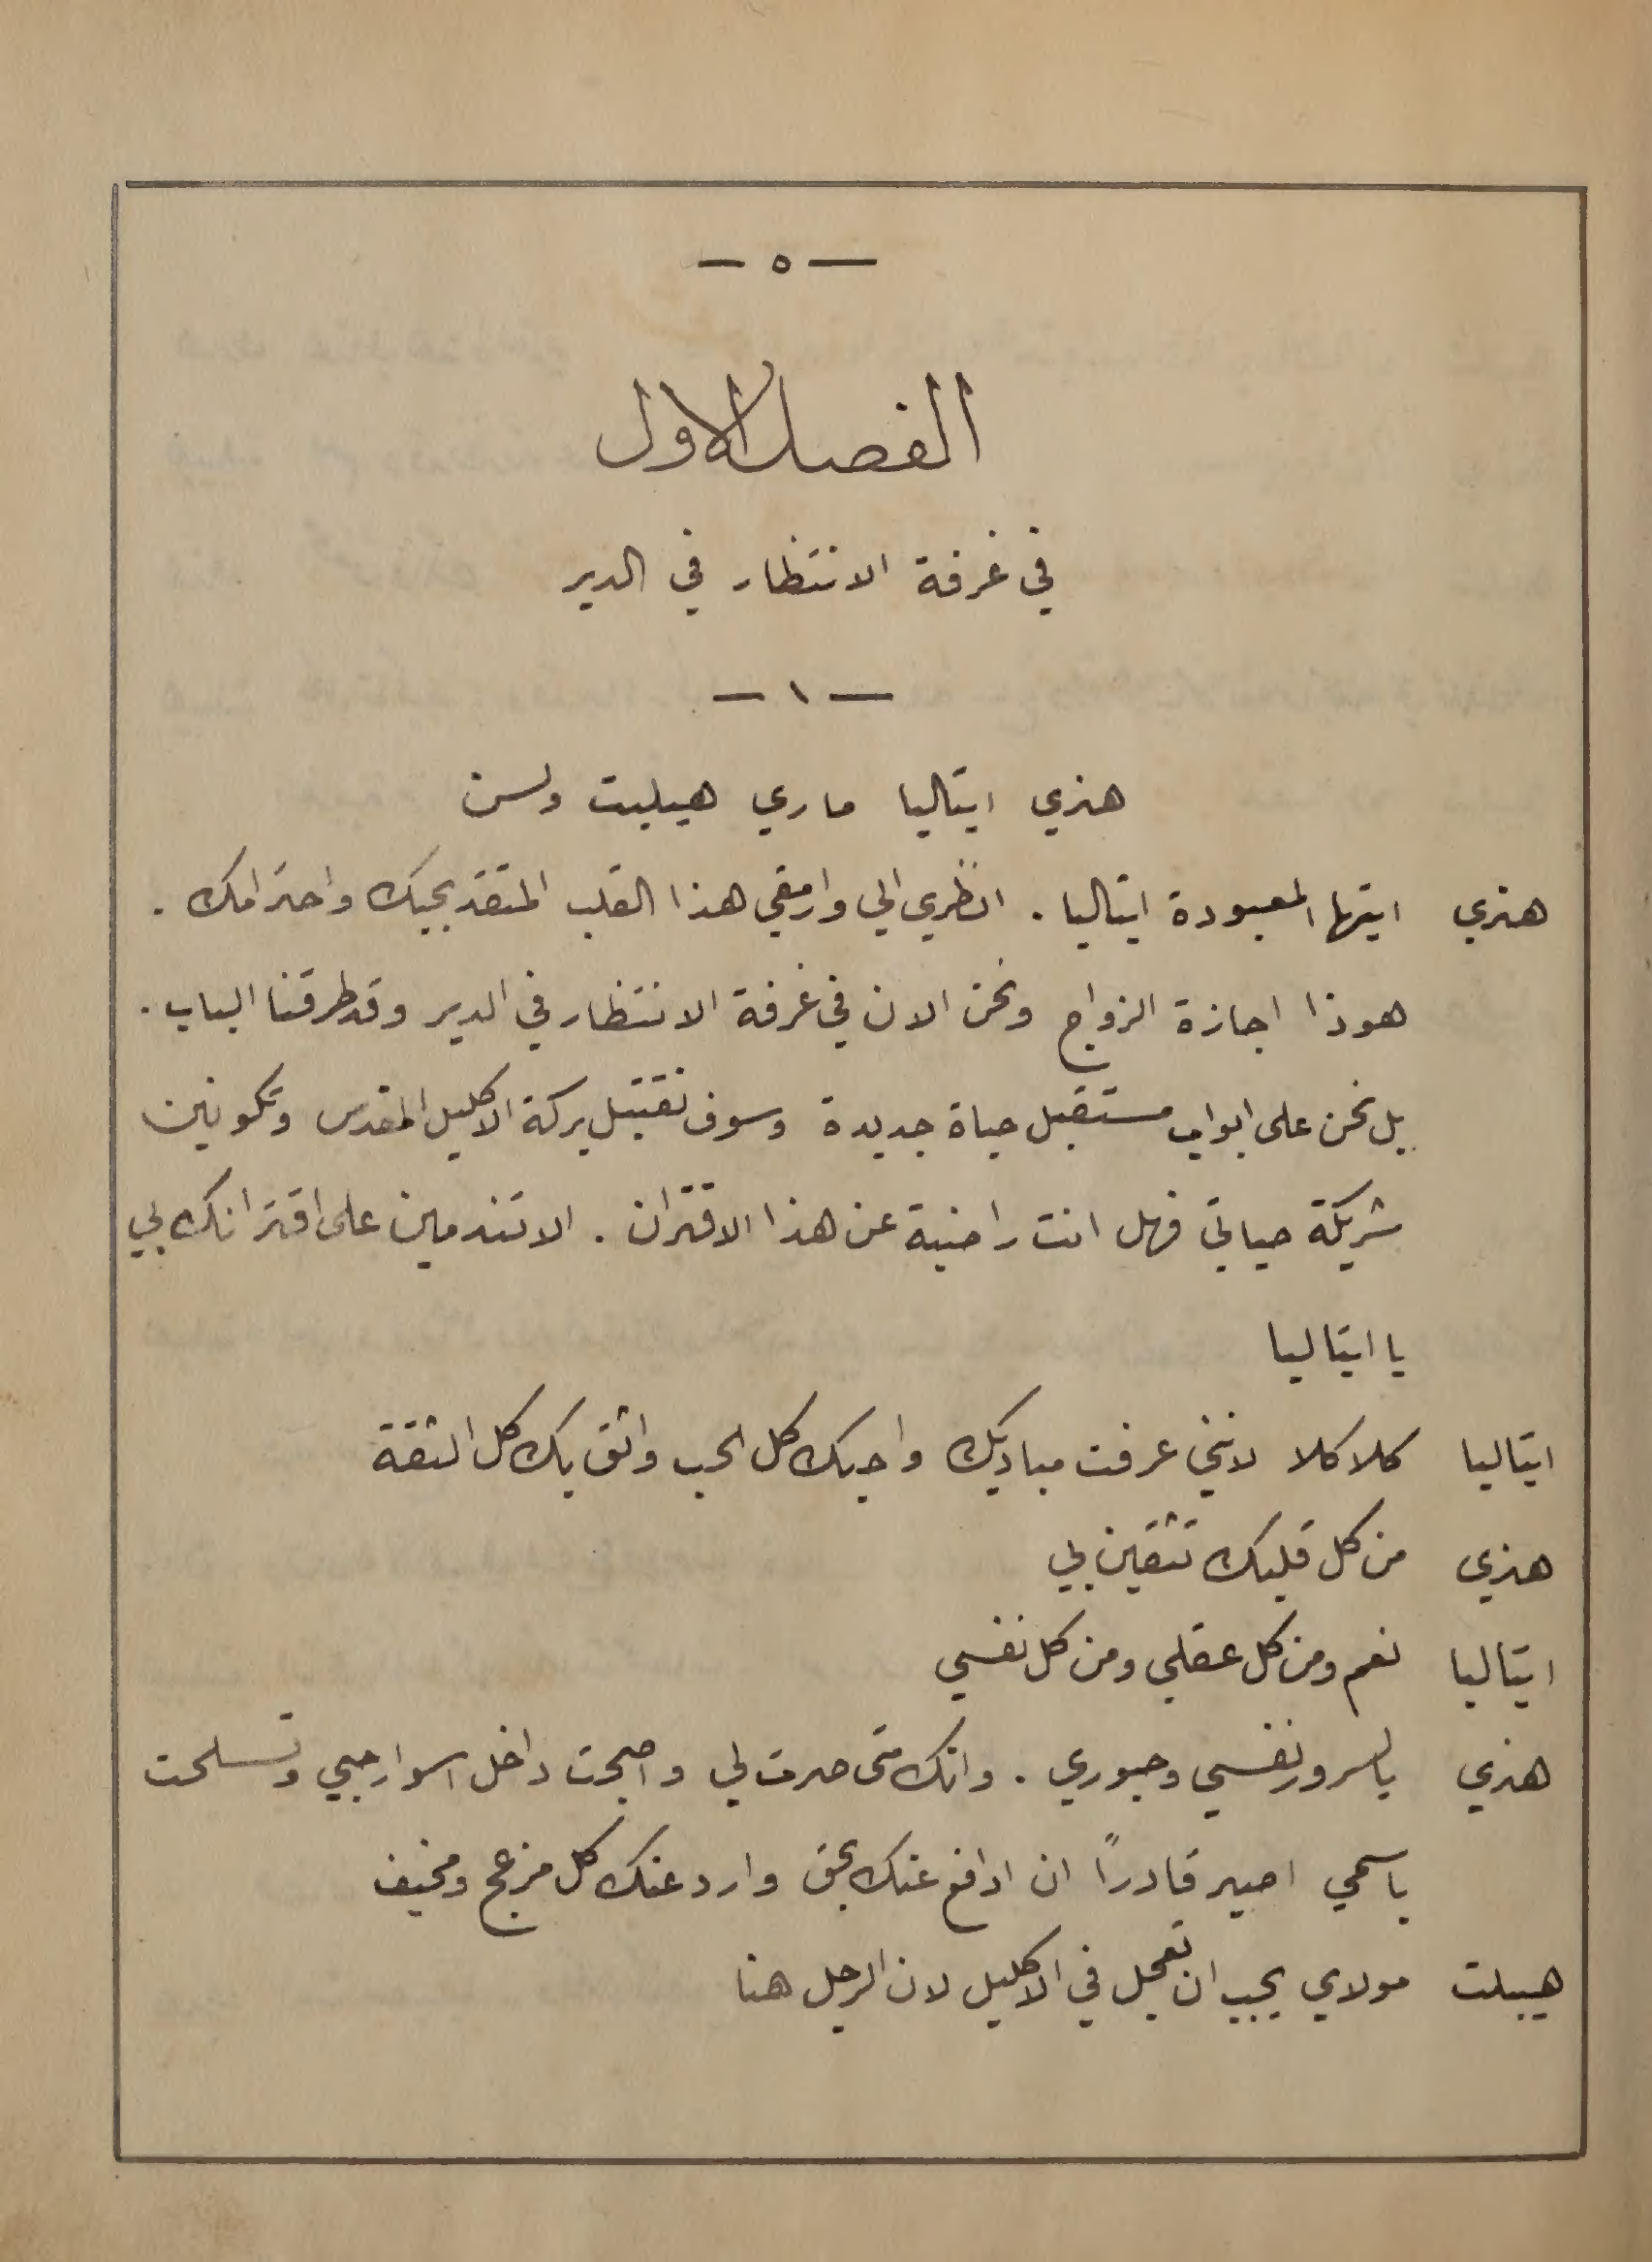 — ٥ —
الفصل الاول
في غرفة الانتظار في الدير
— ١ —
هنري ايتاليا ماري هيبليت ولسن
هنري ايتها المعبودة ايتاليا . انظري الي وارمقي هذا القلب المتقد بحبك واحترامك .
هوذا اجازة الزواج ونحن الان في غرفة الانتظار في الدير وقد طرقنا الباب .
بل نحن على ابواب مستقبل حياة جديدة وسوف نقتبل بركة الاكليل المقدس وتكونين
شريكة حياتي فهل انت راضية عن هذا الاقتران . الا تندمين على اقترانك بي
يا ايتاليا
ايتاليا كلا كلا لانني عرفت مباديك واحبك كل الحب واثق بك كل الثقة
هنري من كل قلبك تثقين بي
ايتاليا نعم ومن كل عقلي ومن كل نفسي
هنري يا لسرور نفسي وحبوري . وانك متى صرت لي واصبحت داخل اسوار حبي وتسلحت
باسمي اصير قادراً ان ادافع عنك بحق وارد عنك كل مزعج ومخيف
هيبلت مولاي يجب ان نعجل في الاكليل لان الرجل هنا